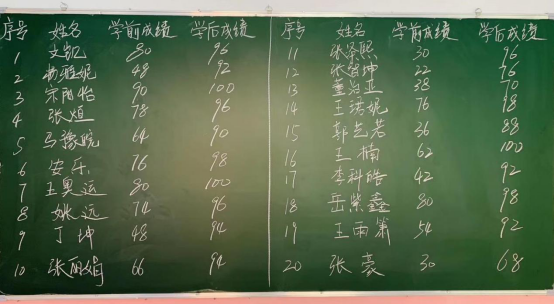 序号 姓名 学前成绩 学后成绩
1 文凯 80 96
2 杨雅妮 48 92
3 宋雨怡 90 100
4 张煊 78 96
5 马豫皖 64 90
6 安乐 76 98
7 王奥运 80 100
8 姚远 74 96
9 丁坤 48 94
10 张丽娟 66 94
序号 姓名 学前成绩 学后成绩
11 张泽熙 30 96
12 张智坤 22 76
13 董治亚 38 70
14 王诺妮 76 98
15 郭芷若 36 88
16 王楠 62 100
17 李科皓 42 92
18 岳紫鑫 80 98
19 王雨萧 54 92
20 张豪 30 68